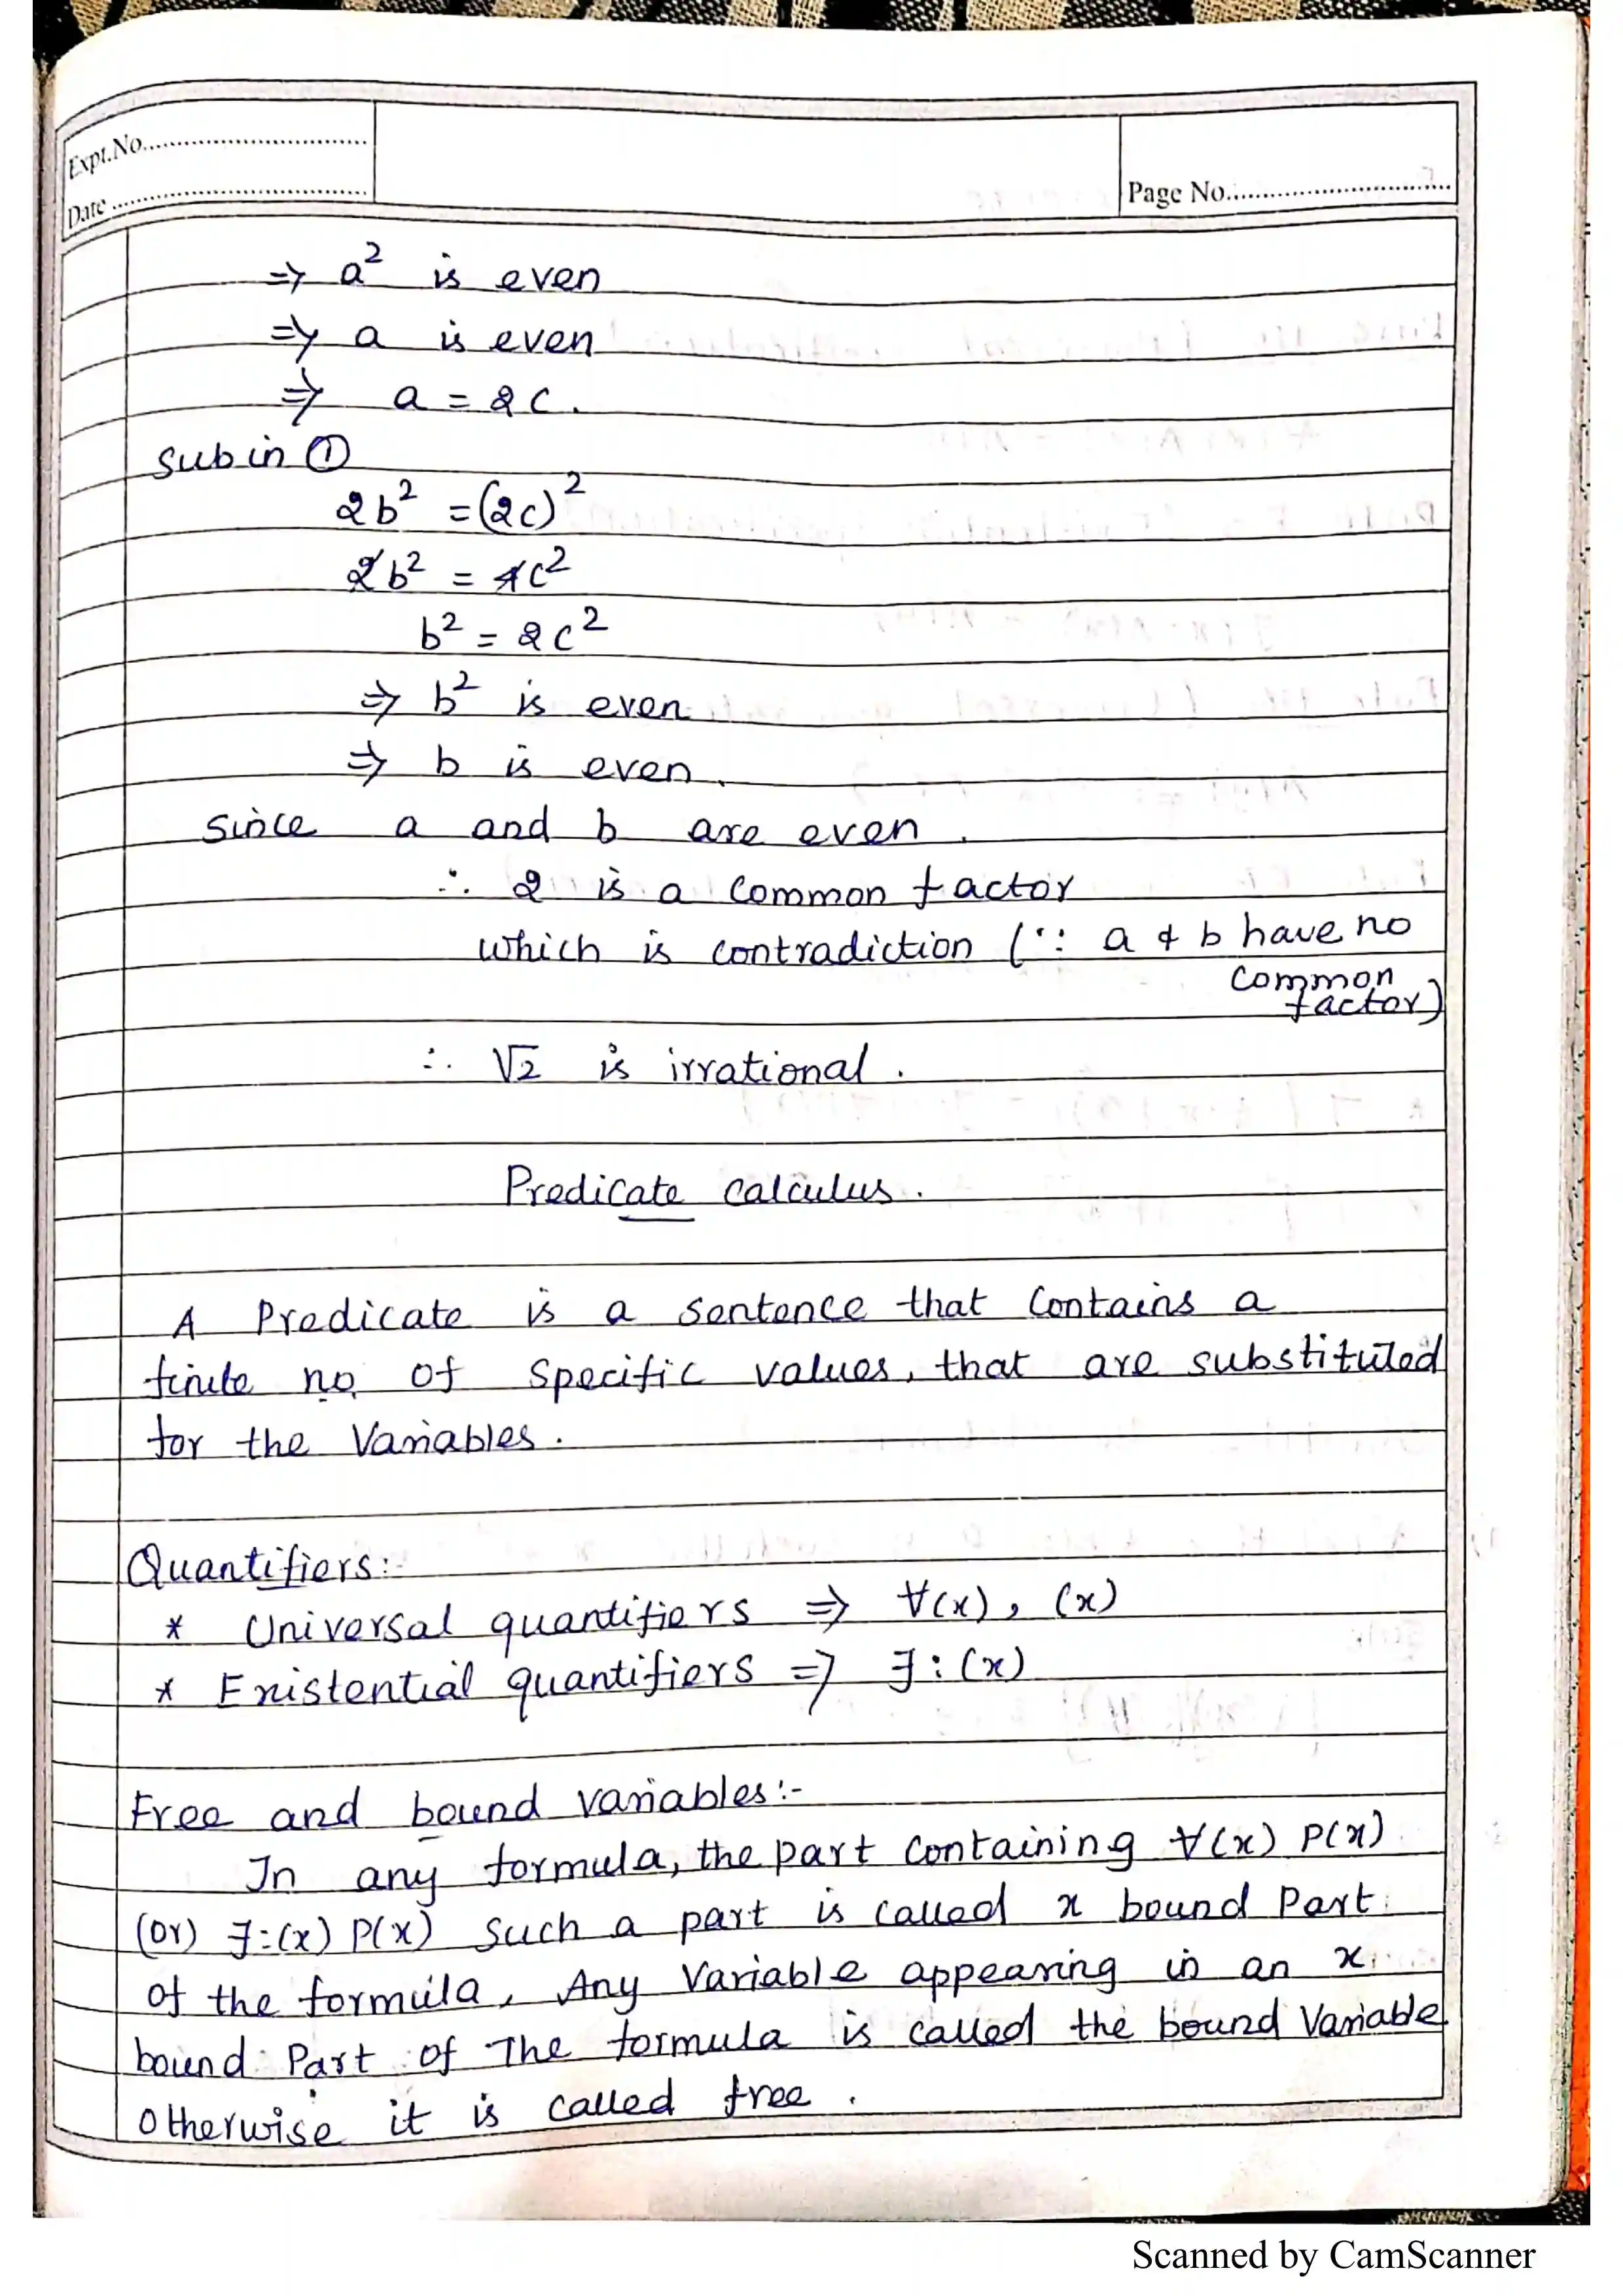 Expt.No.
Date
Page No.
⇒ a² is even
⇒ a is even
⇒ a = 2c.
sub in ①
2b² = (2c)²
2b² = 4c²
b² = 2c²
⇒ b² is even
⇒ b is even.
since a and b are even.
∴ 2 is a common factor
which is contradiction (∵ a & b have no
common
factor)
∴ √2 is irrational.
Predicate calculus.
A Predicate is a sentence that contains a
finite no. of specific values, that are substituted
for the variables.
Quantifiers:-
* Universal quantifiers ⇒ ∀(x), (x)
* Existential quantifiers ⇒ ∃:(x)
Free and bound variables:-
In any formula, the part containing ∀(x) P(x)
(or) ∃:(x) P(x) such a part is called x bound part
of the formula, Any variable appearing in an x
bound part of the formula is called the bound variable
otherwise it is called free.
Scanned by CamScanner